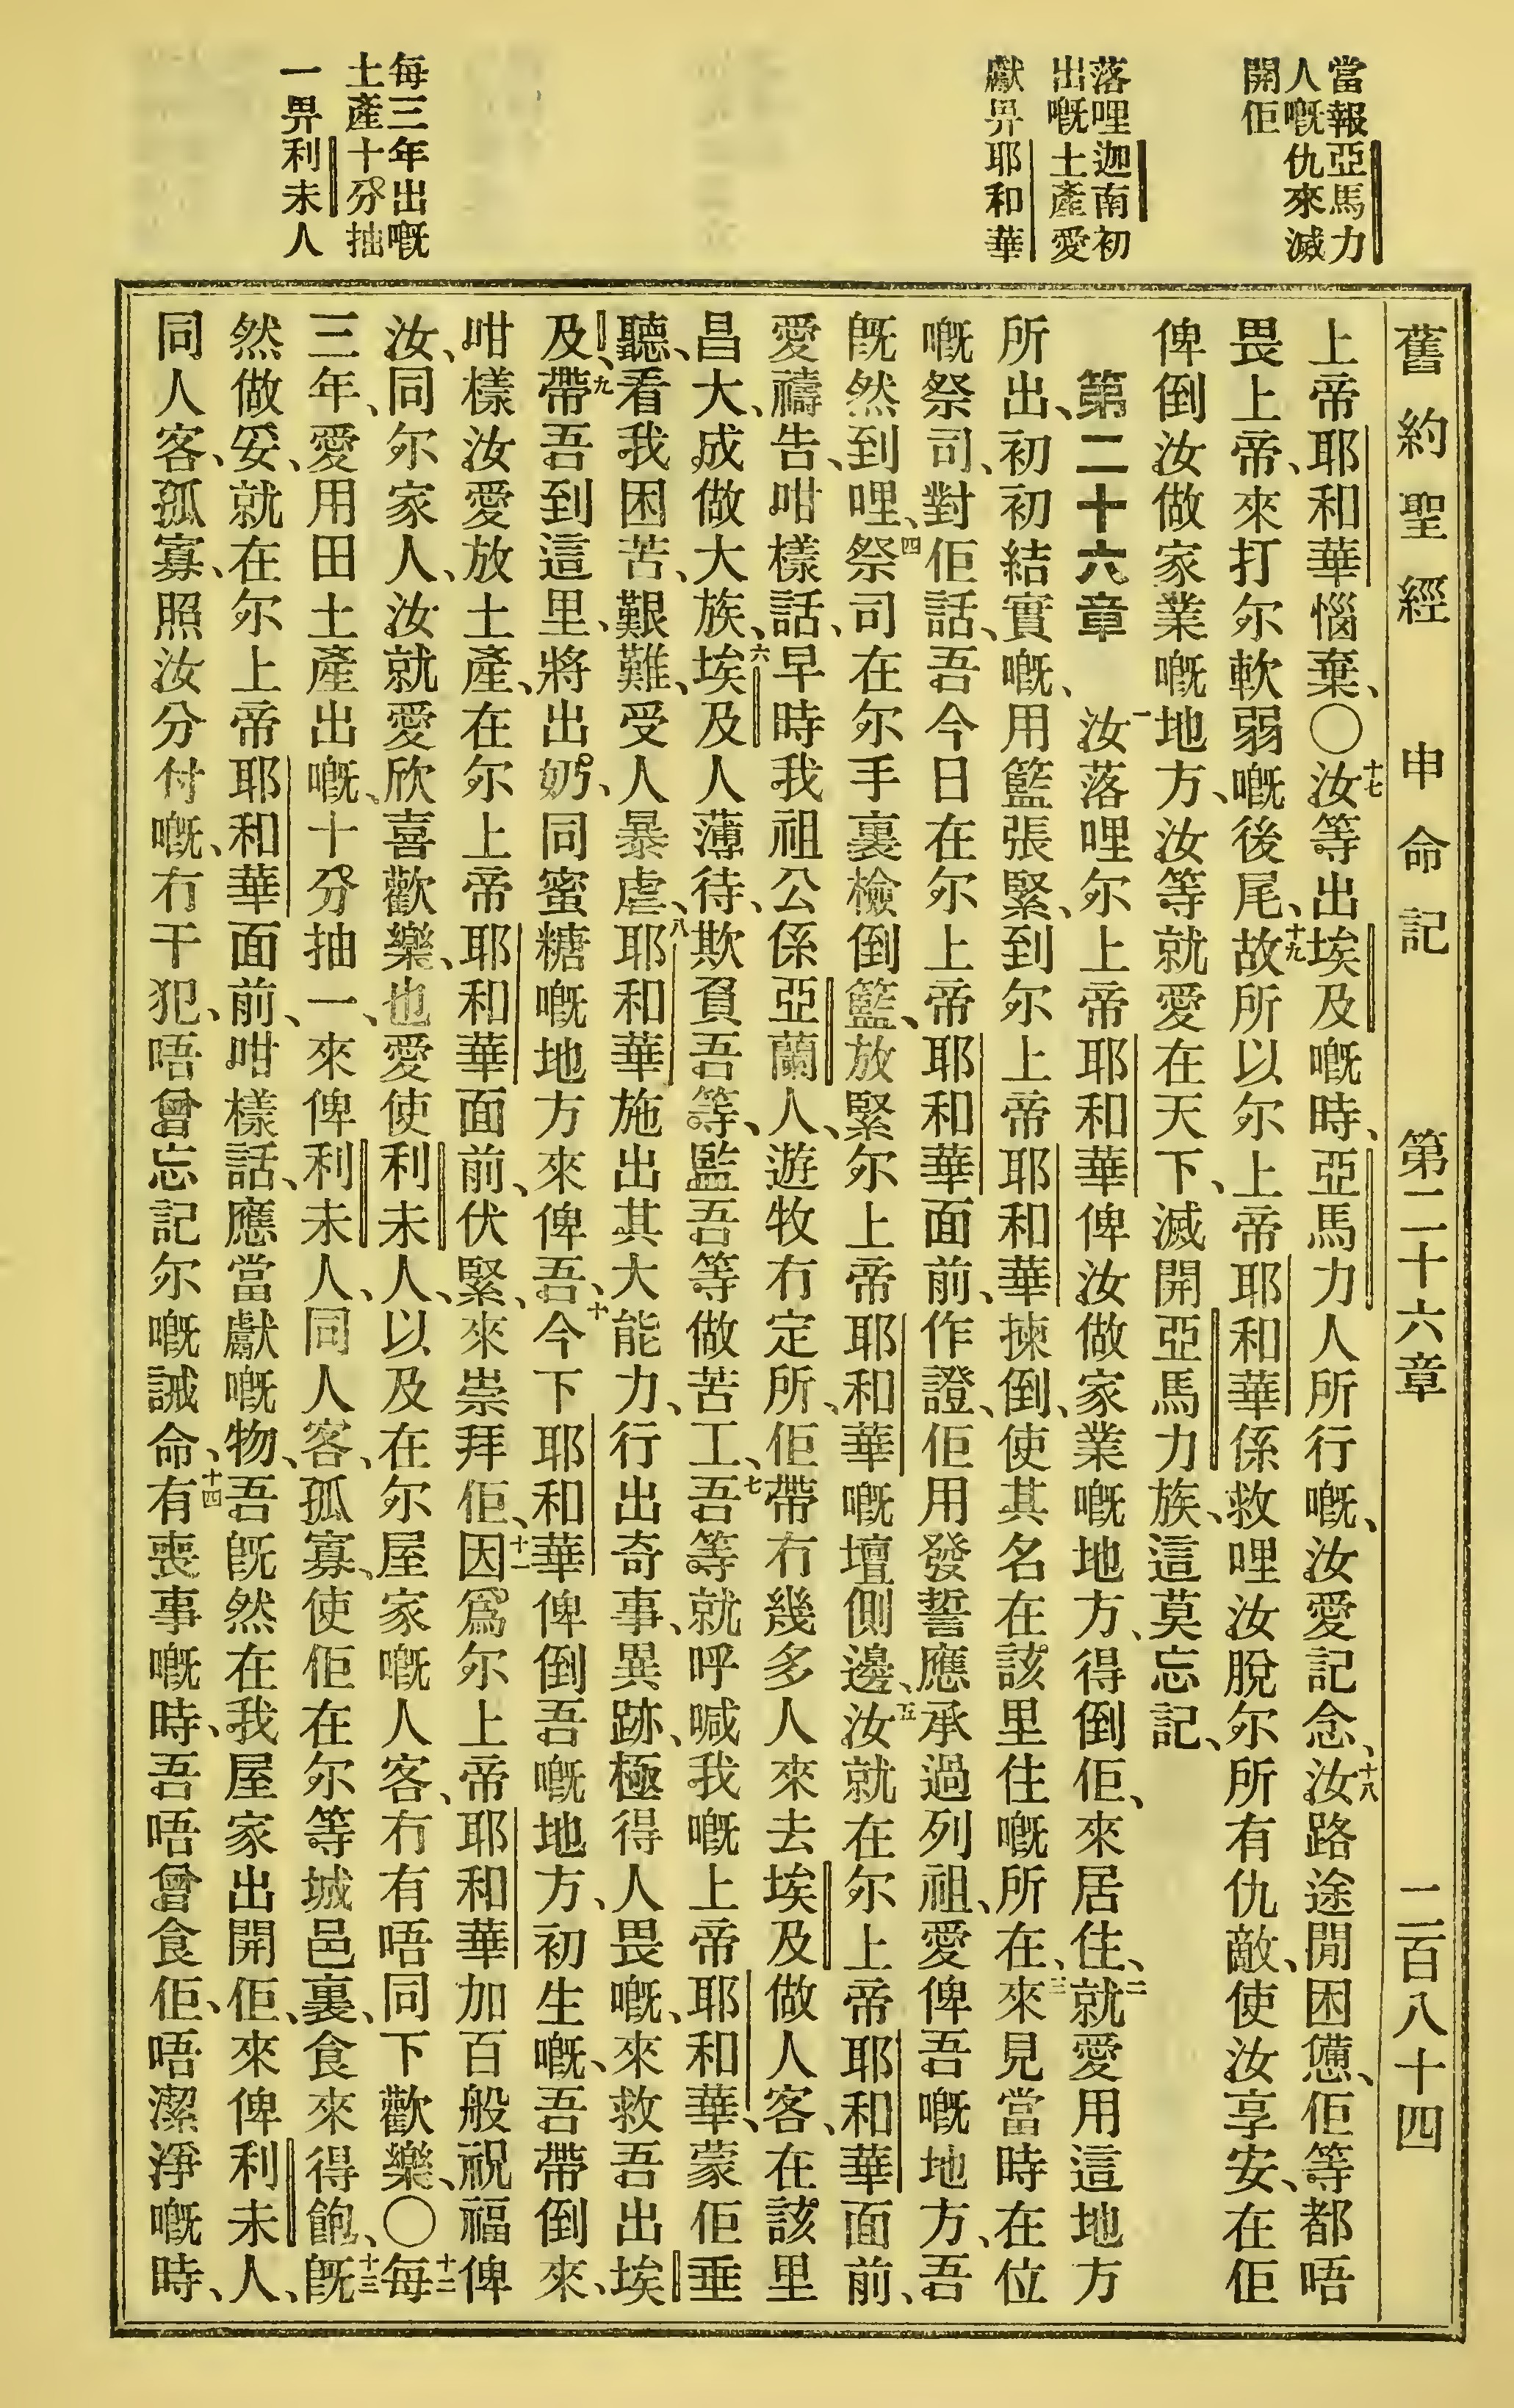 當報亞馬力
人嘅仇來滅
開佢
落哩迦南初
出嘅土產愛
獻畀耶和華
每三年出嘅
土產十分抽
一畀利未人
舊約聖經 申命記 第二十六章 二百八十四
上帝耶和華惱棄、〇十七汝等出埃及嘅時、亞馬力人所行嘅、汝愛記念、十八汝路途間困憊、佢等都唔
畏上帝、來打尔軟弱嘅後尾、十九故所以尔上帝耶和華係救哩汝脫尔所有仇敵、使汝享安、在佢
俾倒汝做家業嘅地方、汝等就愛在天下、滅開亞馬力族、這莫忘記、
第二十六章 一汝落哩尔上帝耶和華俾汝做家業嘅地方、得倒佢、來居住、二就愛用這地方
所出、初初結實嘅、用籃張緊、到尔上帝耶和華揀倒、使其名在該里住嘅所在、三來見當時在位
嘅祭司、對佢話、吾今日在尔上帝耶和華面前、作證、佢用發誓應承過列祖、愛俾吾嘅地方、吾
旣然到哩、四祭司在尔手裏檢倒籃、放緊尔上帝耶和華嘅壇側邊、五汝就在尔上帝耶和華面前、
愛禱告、咁樣話、早時我祖公係亞蘭人、遊牧冇定所、佢帶冇幾多人來去埃及做人客、在該里
昌大、成做大族、六埃及人薄待、欺負吾等、監吾等做苦工、七吾等就呼喊我嘅上帝耶和華、蒙佢垂
聽、看我困苦、艱難、受人暴虐、八耶和華施出其大能力、行出奇事、異跡、極得人畏嘅、來救吾出埃
及、九帶吾到這里、將出奶、同蜜糖嘅地方來俾吾、十今下耶和華俾倒吾嘅地方、初生嘅、吾帶倒來、
咁樣汝愛放土產、在尔上帝耶和華面前、伏緊、來崇拜佢、十一因爲尔上帝耶和華加百般祝福俾
汝、同尔家人、汝就愛欣喜歡樂、也愛使利未人、以及在尔屋家嘅人客、冇有唔同下歡樂、〇十二每
三年、愛用田土產出嘅、十分抽一、來俾利未人、同人客、孤寡、使佢在尔等城邑裏、食來得飽、十三旣
然做妥、就在尔上帝耶和華面前、咁樣話、應當獻嘅物、吾旣然在我屋家出開佢、來俾利未人、
同人客、孤寡、照汝分付嘅、冇干犯、唔曾忘記尔嘅誡命、十四有喪事嘅時、吾唔曾食佢、唔潔淨嘅時、